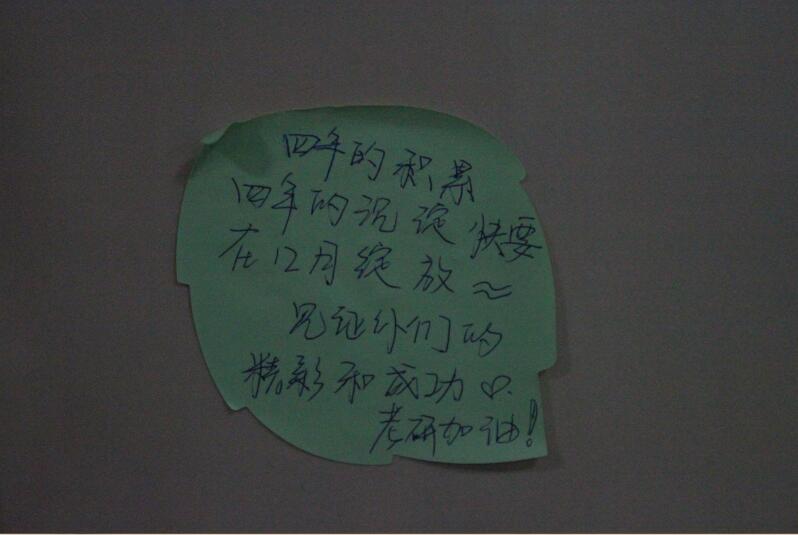 四年的积累
四年的沉淀 快要
在12月绽放~~
见证你们的
精彩和成功♡.
考研加油!